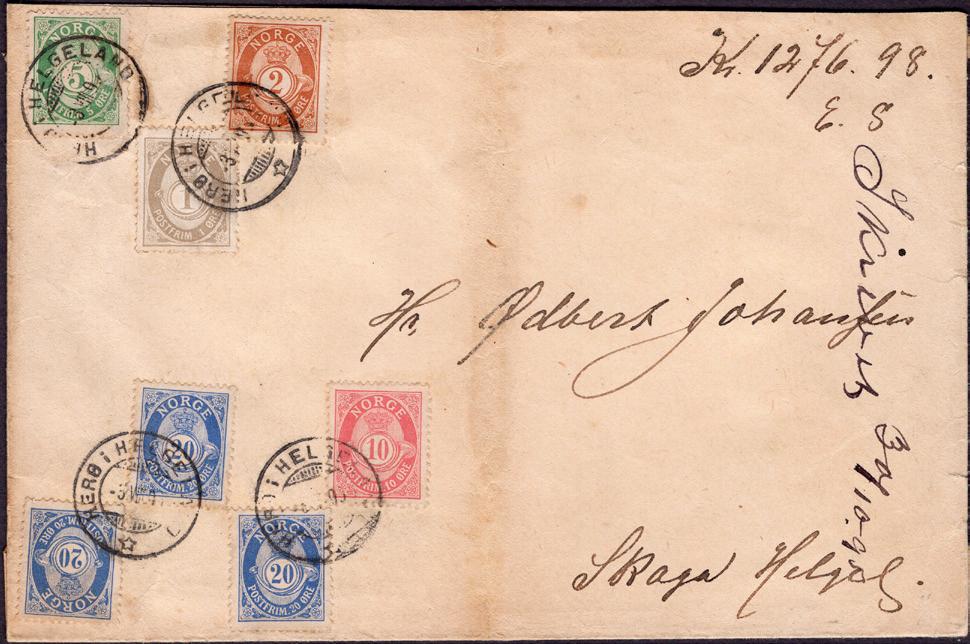 NORGE
5
POSTFRIM. 5 ØRE
NORGE
2
POSTFRIM. 2 ØRE
HELGELAND
HERØ i HELGEL
NORGE
1
POSTFRIM. 1 ØRE
Kr. 1276. 98.
E. S
Hr. Odbert Johansen
NORGE
20
POSTFRIM. 20 ØRE
NORGE
10
POSTFRIM. 10 ØRE
HERØ i HELGEL
HERØ i HELGE
NORGE
20
POSTFRIM. 20 ØRE
NORGE
20
POSTFRIM. 20 ØRE
Skaga Helgel.